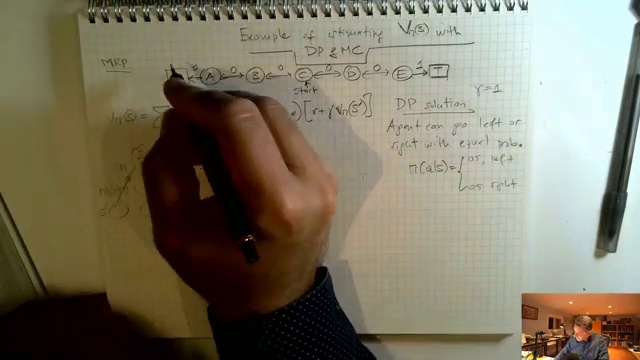 Example of estimating Vπ(s) with
DP & MC
MRP
0 A 0 B 0 C 0 D 0 E 1 T
start
γ=1
Vπ(s) = Σ [r+γVπ(s')]
DP solution
Agent can go left or
right with equal prob.
π(a|s) = { 0.5, left
0.5 right